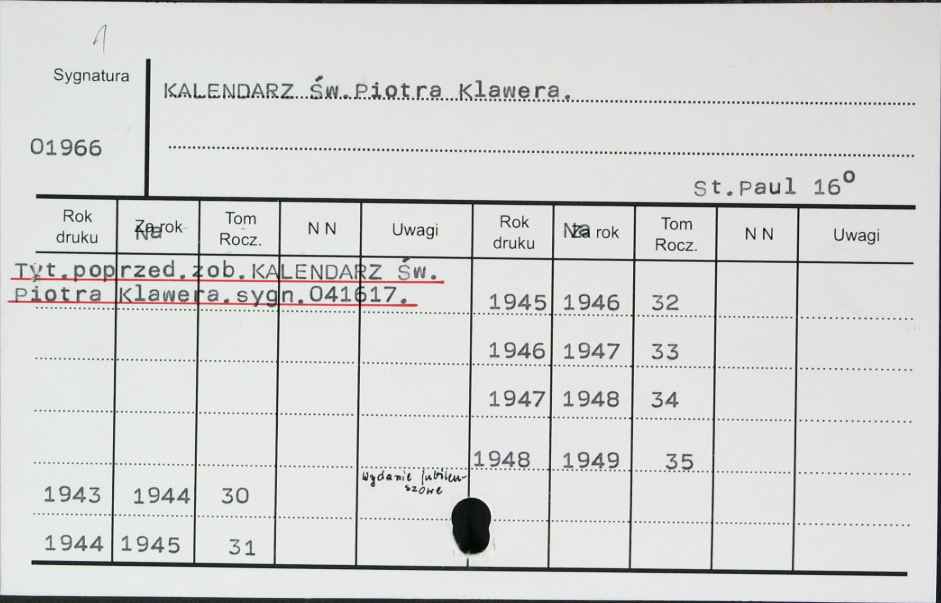 1
Sygnatura
KALENDARZ Św.Piotra Klawera.
01966
St.Paul 16º
Rok druku Na rok Tom Rocz. N N Uwagi Rok druku Na rok Tom Rocz. N N Uwagi
Tyt.poprzed.zob.KALENDARZ Św.
Piotra Klawera.sygn.041617.
1945 1946 32
1946 1947 33
1947 1948 34
1948 1949 35
Wydanie Jubileu-
szowe
1943 1944 30
1944 1945 31